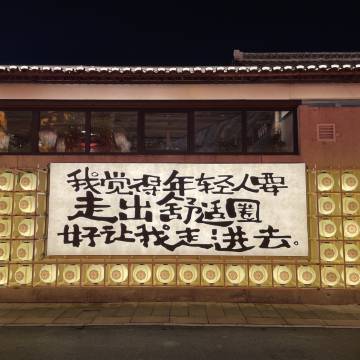 我觉得年轻人要
走出舒适圈
好让我走进去。